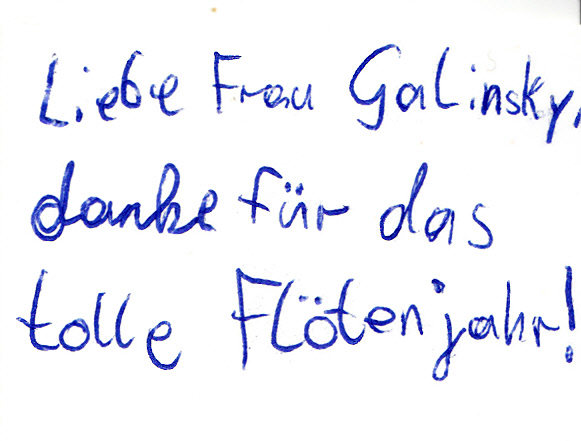 Liebe Frau Galinsky,
danke für das
tolle Flötenjahr!